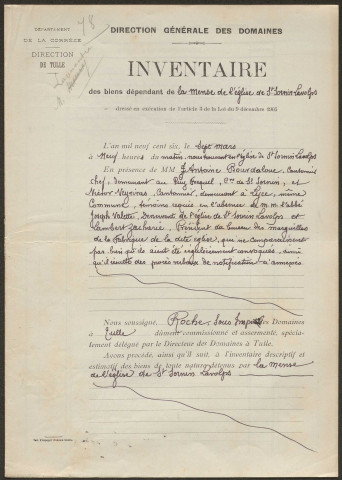 78
DÉPARTEMENT
DE LA CORRÈZE
DIRECTION
DE TULLE
DIRECTION GÉNÉRALE DES DOMAINES
INVENTAIRE
des biens dépendant de la Mense de l'église de St Sornin Lavolps
dressé en exécution de l'article 3 de la Loi du 9 décembre 1905
L'an mil neuf cent six, le Sept mars
à Neuf heures du matin, nous trouvant en l'église de St Sornin Lavolps
En présence de MM. J. Antoine Bourdaloue, Cantonnier
chef, demeurant au Puy, Cne de St Sornin, et
Veyrivas, Cantonnier, demeurant à, même
Commune, témoins requis en l'absence de M. M. l'abbé
Joseph Valette, Desservant de l'église de St Sornin Lavolps et
Lambert Zacharie, Président du bureau des marguilliers
de la Fabrique de la dite église, qui ne comparaissent
pas bien qu'ils aient été régulièrement convoqués, ainsi
qu'il résulte des procès verbaux de notification ci annexés
Nous soussigné, Roche, Sous Inspr des Domaines
à Tulle dûment commissionné et assermenté, spécia-
lement délégué par le Directeur des Domaines à Tulle.
Avons procédé, ainsi qu'il suit, à l'inventaire descriptif et
estimatif des biens de toute nature détenus par la Mense
de l'église de St Sornin Lavolps